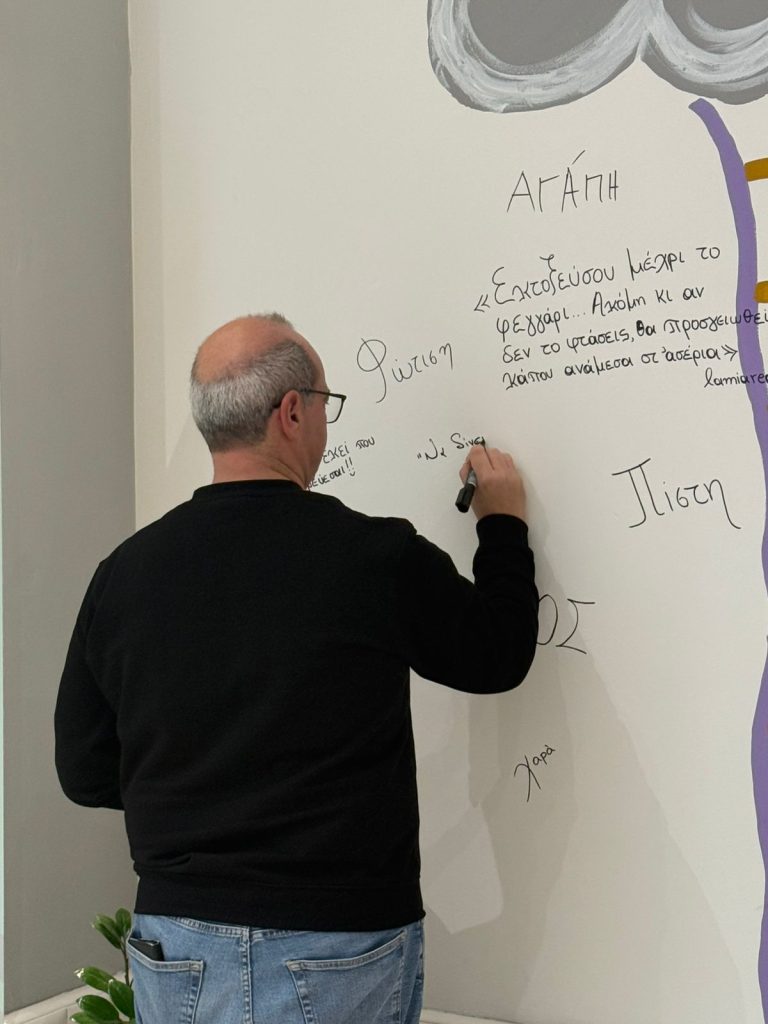 ΑΓΆΠΗ
«Εκτοξεύσου μέχρι το
φεγγάρι... Ακόμη κι αν
δεν το φτάσεις, θα προσγειωθεί
κάπου ανάμεσα στ'αστέρια»
lamiare
Φώτιση
εκεί που
"Να δίνει
Πίστη
ΟΣ
Χαρά